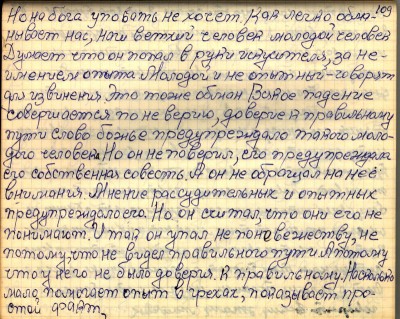 109
Но на бога уповать не хочет. Как легко, обма-
нывает нас, наш ветхий человек молодой человек
Думает что он попал в руки искусителя, за не-
имением опыта Молодой и не опытный - говорят
для извинения Это тоже обман Всякое падение
совершается по не верию, доверие к правильному
пути слово божье предупреждало такого моло-
дого человека Но он не поверил, его предупреждала
его собственная совесть. А он не обращал на неё
внимания. Мнение рассудительных и опытных
предупреждало его. Но он считал, что они его не
понимают. И так он упал не по невежеству, не
потому, что не видел правильного пути А потому
что у него не было доверия. К правильному. Насколько
мало помогает опыт в грехах, показывает про-
стой факт,